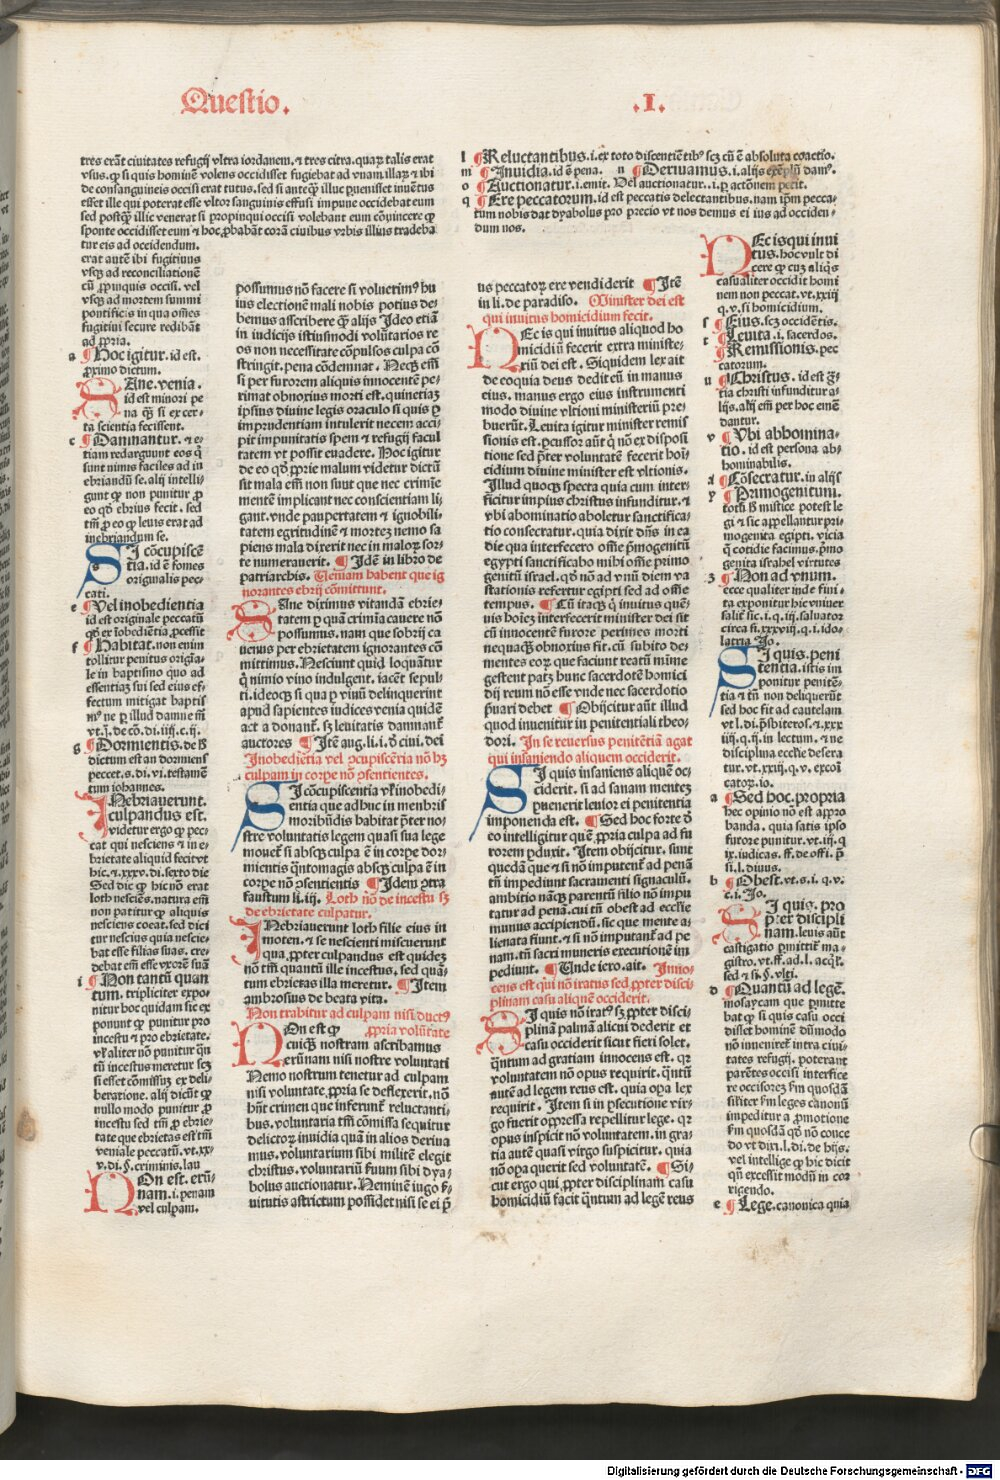 Questio.
.I.
tres erāt ciuitates refugij vltra iordanem. ⁊ tres citra. quaꝝ talis erat
vsus. ꝙ si quis hominē volens occidisset fugiebat ad vnam illaꝝ ⁊ ibi
de consanguineis occisi erat tutus. sed si anteꝙ̄ illuc ꝑuenisset inuētus
esset ille qui poterat esse vltor sanguinis effusi impune occidebat eum
sed postꝙ̄ illic venerat si propinqui occisi volebant eum cōuincere ꝙ
sponte occidisset eum ⁊ hoc ꝓbabāt corā ciuibus vrbis illius tradeba
tur eis ad occidendum.
erat autē ibi fugitiuus
vsqꝫ ad reconciliationē
cū ꝓpinquis occisi. vel
vsqꝫ ad mortem summi
pontificis in qua omēs
fugitiui secure redibāt
ad ꝓpria.
a ¶ Hoc igitur. id est.
ꝓximo dictum.
SAne. venia.
id est minori pe
na qꝫ si ex cer-
ta scientia fecissent.
c ¶ Damnantur. ⁊ e-
tiam redarguunt eos ꝙ
sunt nimis faciles ad in
ebriandū se. alij intelli-
gunt ꝙ non punitur ꝓ
eo ꝙ ebrius fecit. sed
tm̄ ꝓ eo ꝙ leuis erat ad
inebriandum se.
SI cōcupiscē
tia. id ē fomes
originalis pec-
cati.
e ¶ Vel inobedientia
id est originale peccatū
ꝙ ex īobediētia ꝓcessit
f ¶ Habitat. non enim
tollitur penitus origīa-
le in baptismo quo ad
essentiaꝫ sui sed eius ef-
fectum mitigat baptis
mꝰ ne ꝑ illud damnemꝰ
vt. q̄. de cō. di. iiij. c. ij.
g ¶ Dormientis. de hͦ
dictum est an dormiens
peccet. s. di. vi. testamē
tum iohannes.
INebriauerunt.
culpandus est.
videtur ergo ꝙ pec-
cat qui nesciens ⁊ in e-
brietate aliquid fecit vt
hic. ⁊. xxxv. di. sexto die
Sed dic ꝙ hic nō erat
loth nesciēs. natura em̄
non patitur ꝙ aliquis
nesciens coeat. sed dici
tur nescius quia nescie-
bat esse filias suas. cre-
debat em̄ esse vxorē suā
i ¶ Non tantū quan
tum. tripliciter expo-
nitur hoc quidam sic ex
ponunt ꝙ punitur pro
incestu ⁊ pro ebrietate.
vꝉ aliter nō punitur q̄n
tū incestus meretur scꝫ
si esset cōmissuꝫ ex deli-
beratione. alij dicūt ꝙ
nullo modo punitur ꝓ
incestu sed tm̄ ꝓ ebrie-
tate que ebrietas est tm̄
veniale peccatū. vt. xx-
v. di. §. criminis. lau
NOn est. erū-
nam. i. penam
vel culpam.
possumus nō facere si voluerimꝰ hu
ius electionē mali nobis potius de-
bemus asscribere ꝙ̄ alijs Ideo etiā
in iudicijs istiusmodi volūtarios re
os non necessitate cōpulsos culpa cō
stringit. pena cōdemnat. Neqꝫ em̄
si per furorem aliquis innocentē pe-
rimat obnoxius morti est. quinetiaꝫ
ipsius diuine legis oraculo si quis ꝑ
imprudentiam intulerit necem acci-
pit impunitatis spem ⁊ refugij facul
tatem vt possit euadere. Hoc igitur
de eo ꝙ ꝓprie malum videtur dictū
sit mala em̄ non sunt que nec crimīe
mentē implicant nec conscientiam li-
gant. vnde paupertatem ⁊ ignobili-
tatem egritudinē ⁊ mortez nemo sa
piens mala dixerit nec in maloꝝ sor-
te numerauerit. ¶ Idē in libro de
patriarchis. Veniam habent que ig
norantes ebrij cōmittunt.
SAne diximus vitandā ebrie-
tatem ꝑ quā crimīa cauere nō
possumus. nam que sobrij ca
uemus per ebrietatem ignorantes cō
mittimus. Nesciunt quid loquātur
q̄ nimio vino indulgent. iacēt sepul-
ti. ideoqꝫ si qua ꝑ vinū delinquerint
apud sapientes iudices venia quidē
act a donant̄. sꝫ leuitatis damnant̄
auctores ¶ Itē aug. li. i. ð ciui. dei
Inobediētia vel ꝯcupiscētia nō hꝫ
culpam in corpe nō ꝯsentientes.
SI cōcupiscentia vꝉ inobedi-
entia que adhuc in menbris
moribūdis habitat p̄ter no-
stre voluntatis legem quasi sua lege
mouet̄ si absqꝫ culpa ē in corpe dor-
mientis q̄ntomagis absqꝫ culpa ē in
corpe nō ꝯsentientis ¶ Idem ꝯtra
faustum li. iij. Loth nō de incestu sꝫ
de ebrietate culpatur.
INebriauerunt loth filie eius in
moten. ⁊ se nescienti miscuerunt
qua. ꝓpter culpandus est quidez
nō tm̄ quantū ille incestus, sed quā-
tum ebrietas illa meretur. ¶ Item
ambrosius de beata vita.
Non trahitur ad culpam nisi ductꝰ
ꝓpria volūtate
NOn est ꝙ
cuiqꝫ nostram ascribamus
erūnam nisi nostre voluntati
Nemo nostrum tenetur ad culpam
nisi voluntate ꝓpria se deflexerit. nō
hn̄t crimen que inferunt̄ reluctanti-
bus. voluntaria tm̄ cōmissa sequitur
delictoꝝ inuidia quā in alios deriua
mus. voluntarium sibi militē elegit
christus. voluntariū suum sibi dya-
bolus auctionatur. Neminē iugo ẜ-
uitutis astrictum possidet nisi se ei p̄
l ¶ Reluctantibus. i. ex toto discentiētibꝰ scꝫ cū ē absoluta coactio.
m ¶ Inuidia. id ē pena. n ¶ Deriuamus. i. alijs exēplū damꝰ.
o ¶ Auctionatur. i. emit. Del auctionatur.. i. ꝑ actōnem petit.
q ¶ Ere peccatorum. id est peccatis delectantibus. nam ip̄m pecca-
tum nobis dat dyabolus pro precio vt nos demus ei ius ad occiden-
dum nos.
us peccatoꝝ ere vendi derit ¶ Itē
in li. de paradiso. Minister dei est
qui inuitus homicidium fecit.
NEc is qui inuitus aliquod ho
micidiū fecerit extra ministe-
riū dei est. Siquidem lex ait
de eo quia deus dedit eū in manus
eius. manus ergo eius instrumenti
modo diuine vltioni ministeriū pre
buerūt. Leuita igitur minister remis
sionis est. ꝑcussor aūt q̄ nō ex disposi
tione sed p̄ter voluntatē fecerit homi
cidium diuine minister est vltionis.
Illud quoqꝫ specta quia cum inter-
ficitur impius christus infunditur. ⁊
vbi abominatio aboletur sanctifica-
tio consecratur. quia dixit dn̄s in ea
die qua interfecero omē pͥmogenitū
egypti sanctificabo mihi omē primo
genitū israel. ꝙ nō ad vnū diem va
stationis refertur egypti sed ad omē
tempus. ¶ Cū itaqꝫ q̄ inuitus quē-
uis hoīez interfecerit minister dei sit
cū innocentē furore perimēs morti
nequaqꝫ obnoxius fit. cū subito de-
mentes eoꝝ que faciunt reatū mīme
gestent patꝫ hunc sacerdotē homici
dij reum nō esse vnde nec sacerdotio
p̄uari debet ¶ Obijcitur aūt illud
quod inuenitur in penitentiali theo-
dori. In se reuersus penitētiā agat
qui insaniendo aliquem occiderit.
SI quis insaniens aliquē oc-
ciderit. si ad sanam mentez
ꝑuenerit leuior ei penitentia
imponenda est. ¶ Sed hoc forte ð
eo intelligitur quē ꝓpria culpa ad fu
rorem ꝑduxit. Item obijcitur. sunt
quedā que ⁊ si nō imputent̄ ad penā
tn̄ impediunt sacramenti signaculū.
ambitio nāqꝫ parentū filio nō impu
tatur ad penā. cui tn̄ obest ad ecclīe
munus accipiendū. sic que mente a-
lienata fiunt. ⁊ si nō imputant̄ ad pe
nam. tn̄ sacri muneris executionē im
pediunt. ¶ Unde iero. ait. Inno-
cens est qui nō iratus sed ꝓpter disci
plinam casu aliquē occiderit.
SI quis nō iratꝰ sꝫ ꝓpter disci-
plinā palmā alicui dederit et
casu occiderit sicut fieri solet.
q̄ntum ad gratiam innocens est. qꝛ
voluntatem nō opus requirit. q̄ntū
autē ad legem reus est. quia opa lex
requirit. Item si in ꝑsecutione vir-
go fuerit oppressa repellitur lege. qꝛ
opus inspicit nō voluntatem. in gra-
tia autē quasi virgo suspicitur. quia
nō opa querit sed voluntatē. ¶ Si-
cut ergo qui ꝓpter disciplinam casu
homicidiū facit q̄ntum ad legē reus
NEc is qui inui
tus. hoc vult di
cere ꝙ cuꝫ aliq̄s
casualiter occidit homi
nem non peccat. vt. xxiij
q. v. si homicidium.
s ¶ Eius. scꝫ occidētis.
t ¶ Leuita. i. sacerdos.
¶ Remissionis. pec
catorum.
u ¶ Christus. id est gͣ-
tia christi infunditur a-
lijs. alij em̄ per hoc emē
dantur.
v ¶ Vbi abbomina-
tio. id est persona ab-
hominabilis.
x ¶ Cōsecratur. in alijs
y ¶ Primogenitum.
totū hͦ mistice potest le
gi ⁊ sic appellantur pri-
mogenita egipti. vicia
q̄ cotidie facimus. pͥmo
genita israhel virtutes
z ¶ Non ad vnum.
ecce qualiter inde fini-
ta exponitur hic vniuer
salit̄ sic. i. q. iij. saluator
circa fi. xxxiij. q. i. ido-
latria Jo.
SI quis. peni
tentia. istis im
ponitur penitē-
tia ⁊ tn̄ non deliquerūt
sed hoc fit ad cautelam
vt l. di. p̄sbiteros. ⁊. xxx
iij. q. ij. in lectum. ⁊ ne
disciplina ecclīe desera
tur. vt. xxij. q. v. excoī
catoꝝ. io.
a ¶ Sed hoc. propria
hec opinio nō est appro
banda. quia satis ipso
furore punitur. vt. ij. q
ix. iudicas. ff. de offi. p̄
si. l. diuus.
b ¶ Obest. vt. s. i. q. v.
c. i. Jo.
SI quis. pro
pter discipli
nam. leuis aūt
castigatio ꝑmittit̄ ma-
gistro. vt. ff. ad. l. acq̄l.
sed ⁊ si. §. vlti.
d ¶ Quantū ad legē.
mosaycam que ꝑmitte
bat ꝙ si quis casu occi
disset hominē dūmodo
nō inueniret̄ intra ciui-
tates refugij. poterant
parētes occisi interfice
re occisorez ẜm quosdā
silit̄er ẜm leges canonū
impeditur a ꝓmotione
ẜm quosdā ꝙ nō conce
do vt dixi. l. di. de hijs.
vel intellige ꝙ hic dicit
qn̄ excessit modū in cor
rigendo.
e ¶ Lege. canonica quia
Digitalisierung gefördert durch die Deutsche Forschungsgemeinschaft - DFG